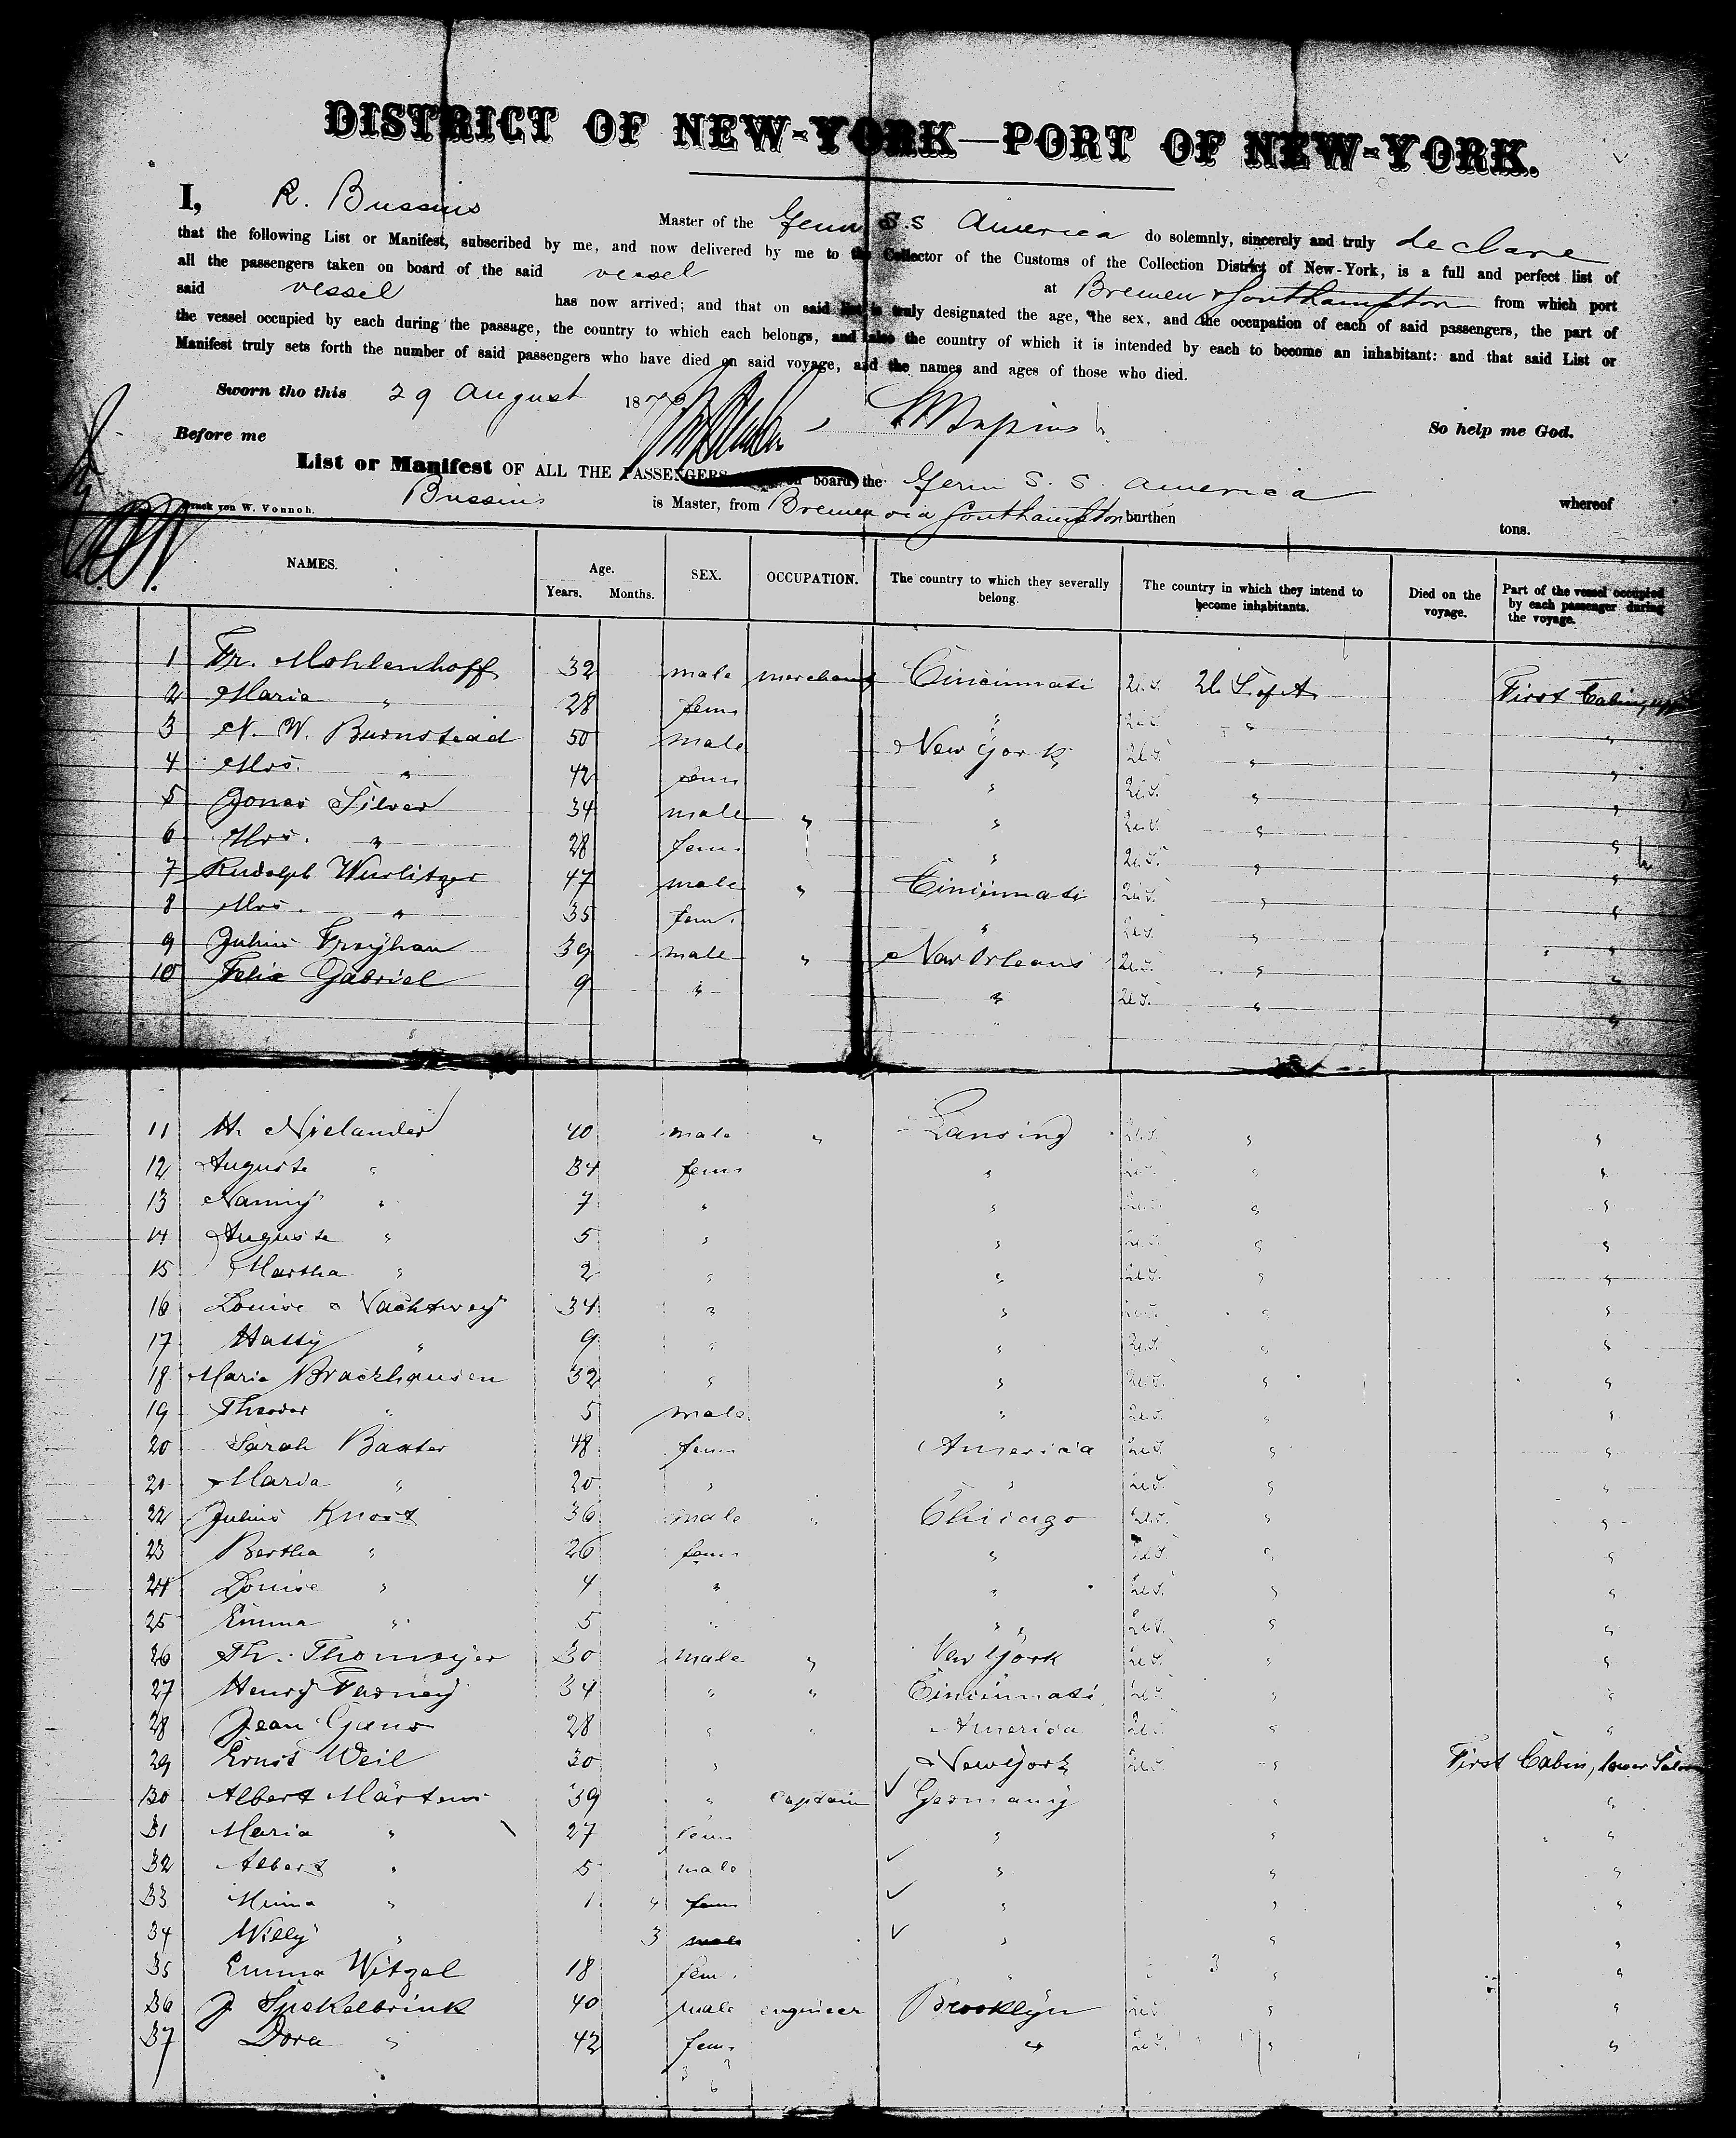 DISTRICT OF NEW-YORK—PORT OF NEW-YORK.
I, R. Bussius Master of the Germ S.S. America do solemnly, sincerely and truly declare
that the following List or Manifest, subscribed by me, and now delivered by me to the Collector of the Customs of the Collection District of New-York, is a full and perfect list of
all the passengers taken on board of the said vessel at Bremen & Southampton from which port
said vessel has now arrived; and that on said list is truly designated the age, the sex, and the occupation of each of said passengers, the part of
the vessel occupied by each during the passage, the country to which each belongs, and also the country of which it is intended by each to become an inhabitant: and that said List or
Manifest truly sets forth the number of said passengers who have died on said voyage, and the names and ages of those who died.
Sworn tho this 29 August 187
So help me God.
Before me
List or Manifest OF ALL THE PASSENGERS on board the Germ S. S. America whereof
Bussius is Master, from Bremen via Southampton burthen tons.
Druck von W. Vonnoh.
NAMES. Age. Years. Months. SEX. OCCUPATION. The country to which they severally belong. The country in which they intend to become inhabitants. Died on the voyage. Part of the vessel occupied by each passenger during the voyage.
1 Fr. Mohlenhoff 32 male merchant Cincinnati U.S. U. S. of A. First Cabin, upp
2 Maria " 28 fem " U.S. " "
3 N. W. Burnstead 50 male New York U.S. " "
4 Mrs. " 42 fem " U.S. " "
5 Jonas Silver 34 male " " U.S. " "
6 Mrs. " 28 fem. " U.S. " "
7 Rudolph Wurlitzer 47 male " Cincinnati U.S. " "
8 Mrs. " 35 fem. " U.S. " "
9 Julius Freyhan 39 male " New Orleans U.S. " "
10 Felix Gabriel 9 " " U.S. " "
11 H. Nielander 40 male " Lansing U.S. " "
12 Auguste " 34 fem " U.S. " "
13 Nanny " 7 " " U.S. " "
14 Auguste " 5 " " U.S. " "
15 Martha " 2 " " U.S. " "
16 Louise Nachtwey 34 " " U.S. " "
17 Hatty " 9 " " U.S. " "
18 Maria Brackhausen 32 " " U.S. " "
19 Theodor " 5 male " U.S. " "
20 Sarah Baxter 48 fem America U.S. " "
21 Maria " 20 " " U.S. " "
22 Julius Knost 36 male " Chicago U.S. " "
23 Bertha " 26 fem " U.S. " "
24 Louise " 4 " " U.S. " "
25 Emma " 5 " " U.S. " "
26 Th. Thomeyer 30 male " New York U.S. " "
27 Henry Farney 34 " " Cincinnati U.S. " "
28 Jean Gano 28 " " America U.S. " "
29 Ernst Weil 30 " New York U.S. " First Cabin, lower Saloon
30 Albert Märtens 39 " Captain Germany " "
31 Maria " 27 fem " " "
32 Albert " 5 male " " "
33 Minna " 1 4 fem " " "
34 Willy " 3 male " " "
35 Emma Witzel 18 fem. " " "
36 J. Spekelbrink 40 male engineer Brooklyn U.S. " "
37 Dora " 42 fem. " U.S. " "